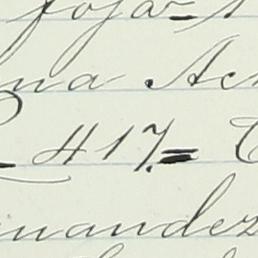 foja=
na Ac
417.=
nandez